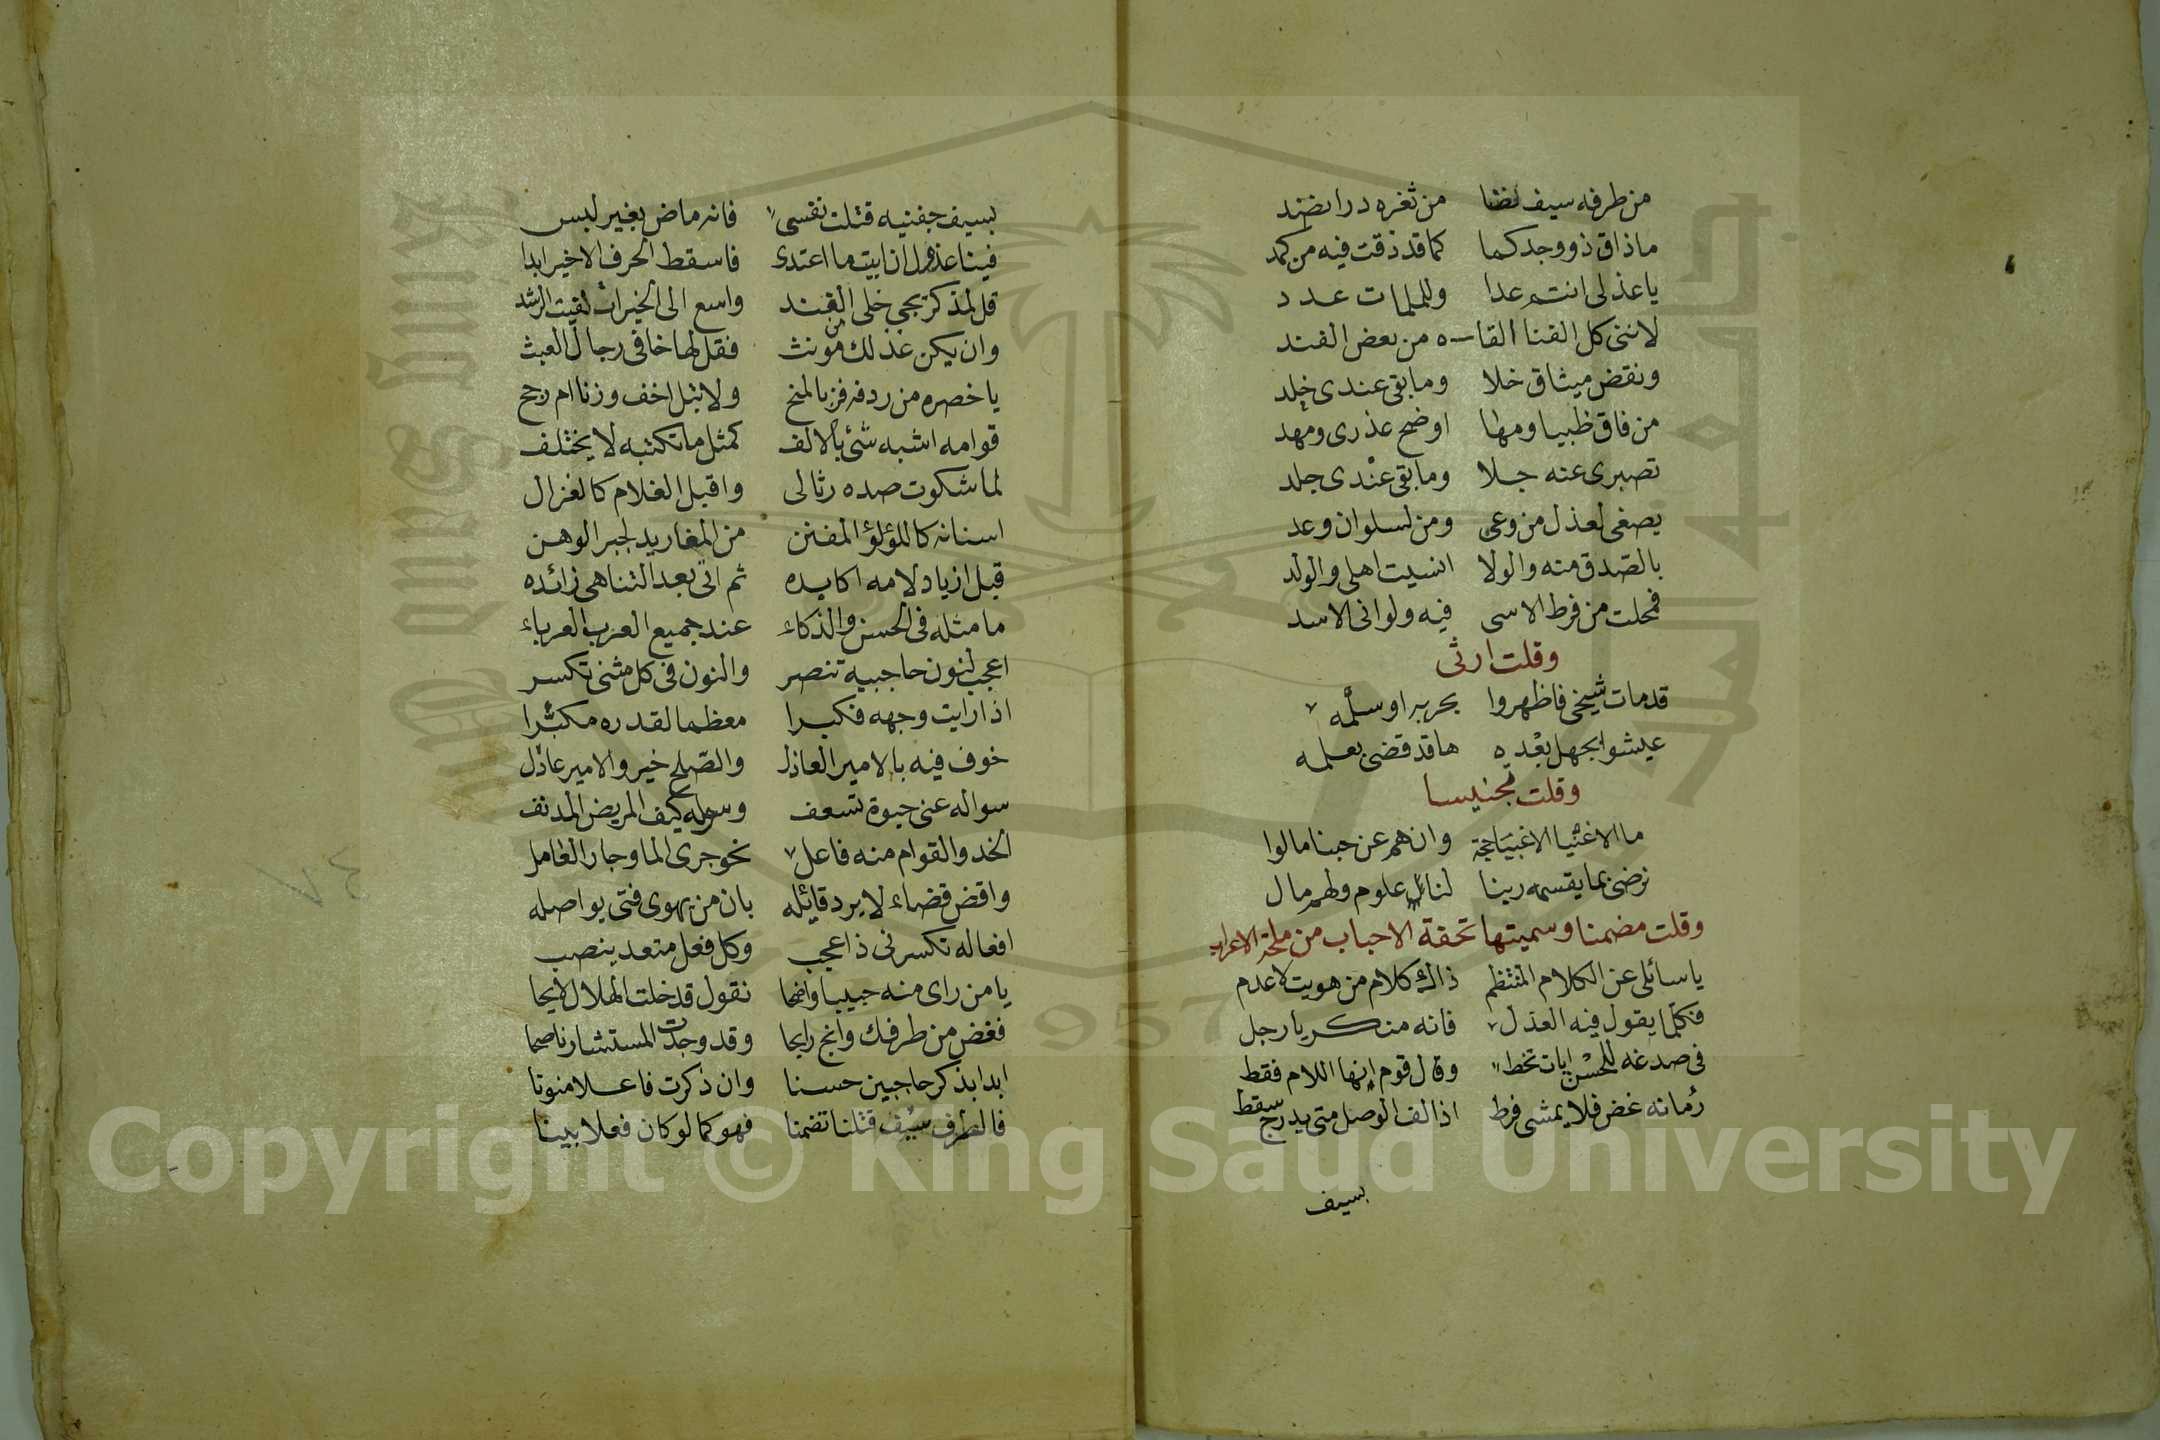 من طرفه سيف نضا من ثغره در ا نضد
ماذاق ذو وجد كما كما قد ذقت فيه من كمد
يا عذلى انتم عدا وللملمات عدد
لاننى كل القنا القاه من بعض الفند
ونقض ميثاق خلا وما بقى عندى خلد
من فاق ظبيا ومها اوضح عذرى ومهد
تصبرى عنه جلا وما بقى عندى جلد
يصغى لعذل من وعى ومن لسلوان وعد
بالصدق منه والولا انسيت اهلى والولد
فمحلت من فرط الاسى فيه ولوانى الاسد
وقلت ارثى
قد مات شيخى فاظهروا بحربه او سلمه
عيشوا بجهل بعده ها قد قضى بعلمه
وقلت تجنيسا
ما الاغنيا الاغبيا حجة وان هم عن حبنا مالوا
نرضى بما يقسمه ربنا لنا علوم ولهم مال
وقلت مضمنا وسميتها تحفة الاحباب من ملحة الاعراب
يا سائلى عن الكلام المنتظم ذاك كلام من هويت لا عدم
فكلما يقول فيه العذل فانه منكر يا رجل
فى صدغه للحسن ايات تخط وقال قوم انها اللام فقط
رمانه غض فلا يمشى فرط اذ الف الوصل متى يدرج سقط
بسيف
بسيف جفنيه قتلت نفسى فانه ماض بغير لبس
فينا عذولى ان ابيت ما اعتدى فاسقط الحرف الاخير ابدا
قل لمذكر بجى خلى الفند واسع الى الخيرات لقيت الرشد
وان يكن عذلك من مونث فقل لها خافى رجال العبث
يا خصره من ردفه فز بالمنح ولا تبل اخف وزنا ام رجح
قوامه اشبه شئ بالالف كمثل ما تكتبه لا يختلف
لما شكوت صده رثا لى واقبل الغلام كالغزال
اسنانه كاللؤلؤ المفتن من المغاريد لجبر الوهن
قبل ازياد لامه اكابده ثم اتى بعد التناهى زائده
ما مثله فى الحسن والذكاء عند جميع العرب العرباء
اعجب لنون حاجبيه تنصر والنون فى كل مثنى تكسر
اذا رايت وجهه فكبرا معظما لقدره مكبرا
خوف فيه بالامير العاذل والصلح خير والامير عادل
سواله عنى حيوة تسعف وسوله كيف المريض المدنف
الخد والقوام منه فاعل نحو جرى الما وجار العامل
واقض قضاء لا يرد قائله بان من يهوى فتى يواصله
افعاله تكسرنى ذا عجب وكل فعل متعد ينصب
يا من راى منه جبيبا واضحا نقول قد خلت الهلال لايحا
فغض من طرفك وانج رايحا وقد وجدت المستشار ناصحا
ابدا بذكر حاجبين حسنا وان ذكرت فاعلا منونا
فالطرف سيف قتلنا تضمنا فهو كما لو كان فعلا بينا
Copyright © King Saud University
1957